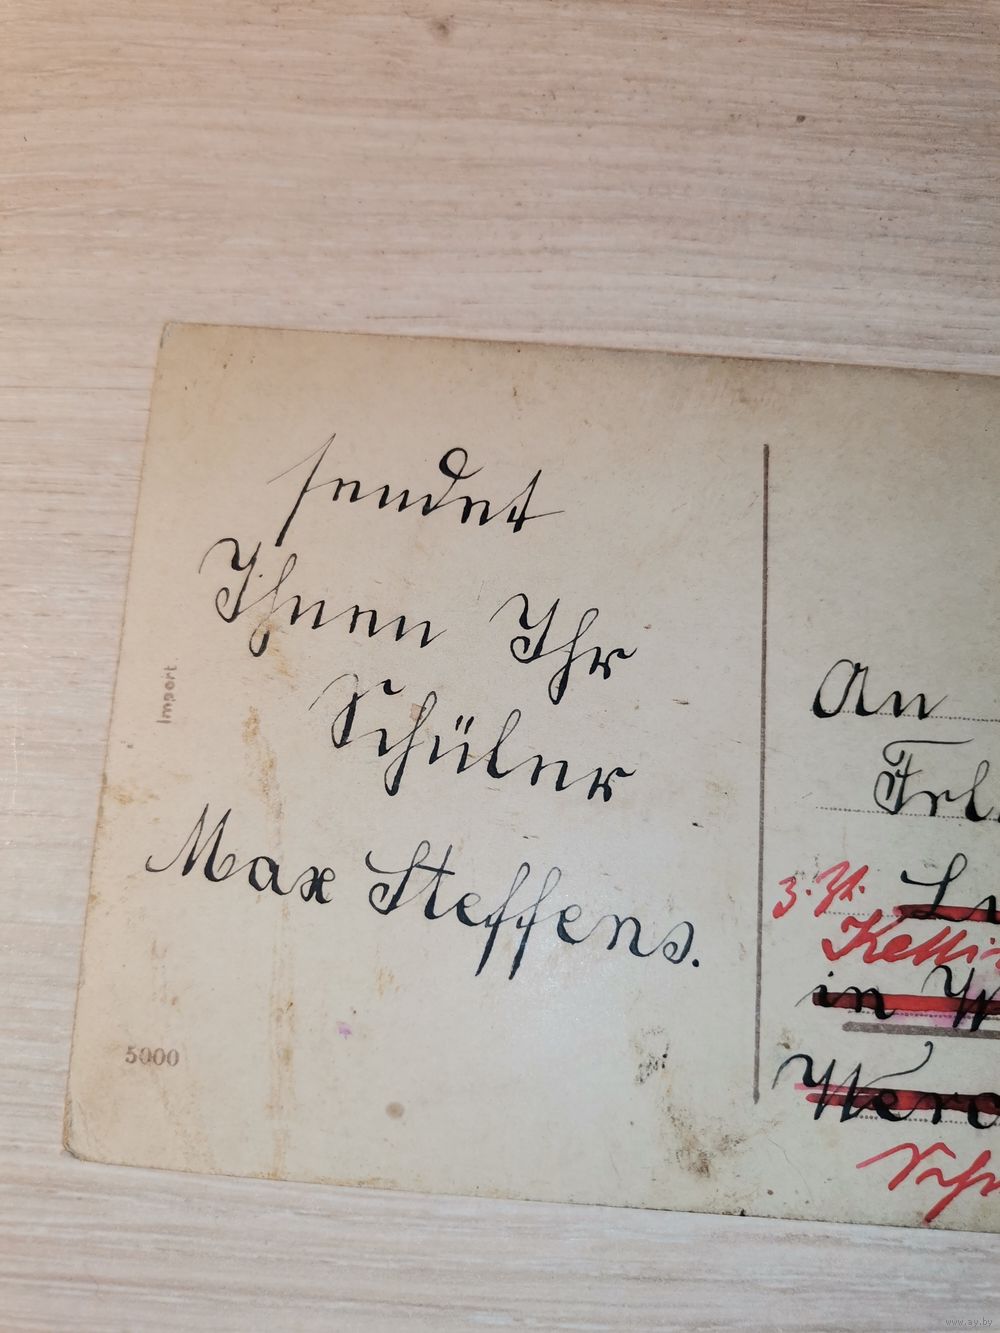 sendet
Ihnen Ihr
Schüler
Max Steffens.
Import
5000
An
Frl.
z. Zt.
in
www.ay.by